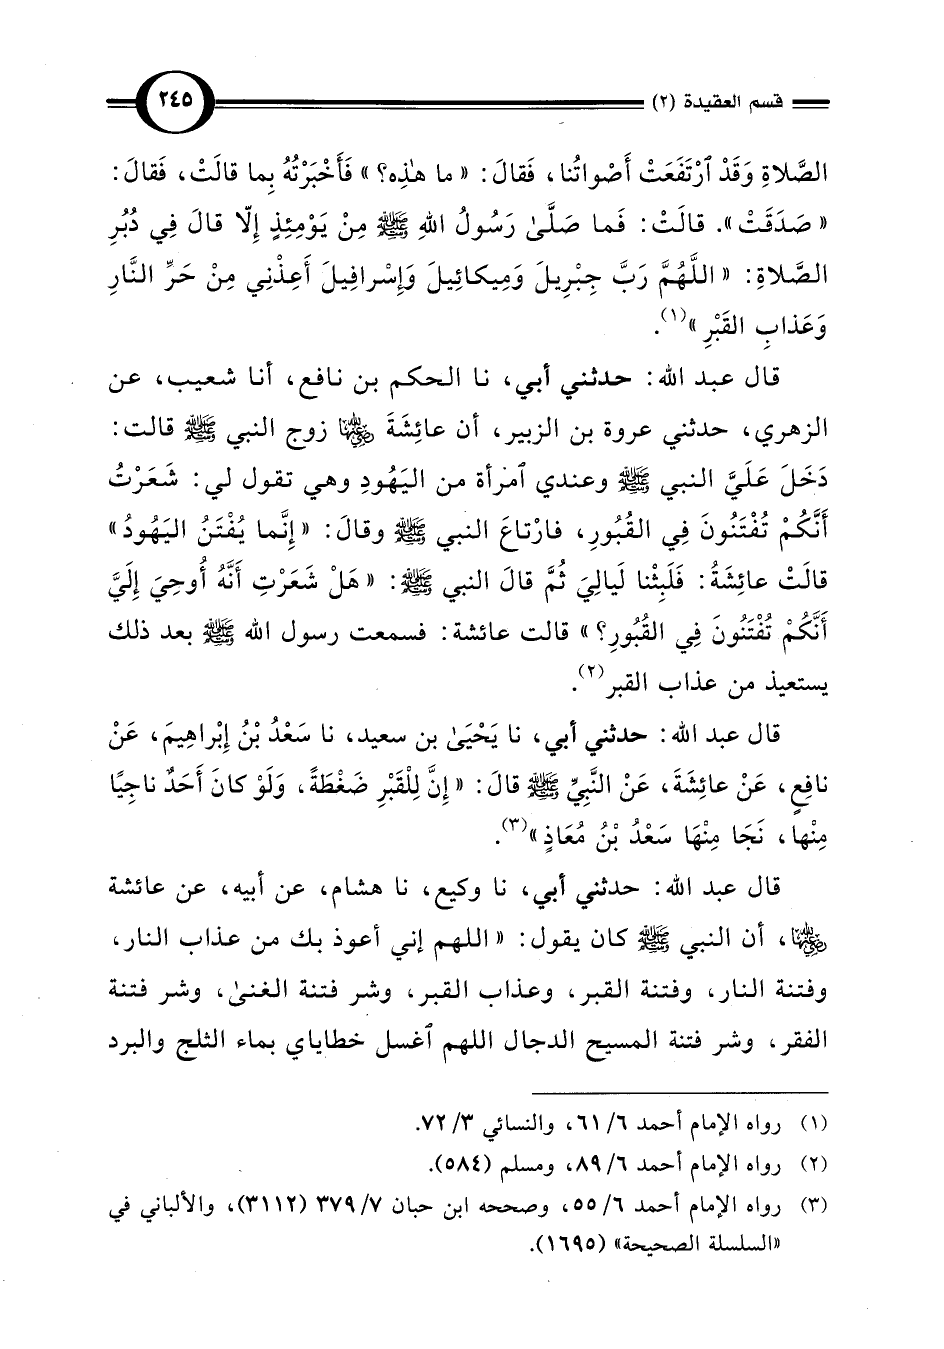 قسم العقيدة (٢)
٢٤٥
الصَّلاةِ وَقَدْ ٱرْتَفَعَتْ أَصْواتُنا، فَقالَ: « ما هٰذِه؟ » فَأَخْبَرْتُهُ بِما قالَتْ، فَقالَ:
« صَدَقَتْ ». قالَتْ: فَما صَلَّىٰ رَسُولُ اللهِ ﷺ مِنْ يَوْمِئِذٍ إِلّا قالَ فِي دُبُرِ
الصَّلاةِ: « اللَّهُمَّ رَبَّ جِبْرِيلَ وَمِيكائِيلَ وَإِسْرافِيلَ أَعِذْنِي مِنْ حَرِّ النَّارِ
وَعَذابِ القَبْرِ »(١).
قال عبد الله: حدثني أبي، نا الحكم بن نافع، أنا شعيب، عن
الزهري، حدثني عروة بن الزبير، أن عائِشَةَ رضي الله عنها زوج النبي ﷺ قالت:
دَخَلَ عَلَيَّ النبي ﷺ وعندي ٱمرأة من اليَهُودِ وهي تقول لي: شَعَرْتُ
أَنَّكُمْ تُفْتَنُونَ فِي القُبُورِ، فارْتاعَ النبي ﷺ وقالَ: « إِنَّما يُفْتَنُ اليَهُودُ »
قالَتْ عائِشَةُ: فَلَبِثْنا لَيالِيَ ثُمَّ قالَ النبي ﷺ: « هَلْ شَعَرْتِ أَنَّهُ أُوحِيَ إِلَيَّ
أَنَّكُمْ تُفْتَنُونَ فِي القُبُورِ؟ » قالت عائشة: فسمعت رسول الله ﷺ بعد ذلك
يستعيذ من عذاب القبر(٢).
قال عبد الله: حدثني أبي، نا يَحْيَىٰ بن سعيد، نا سَعْدُ بْنُ إِبْراهِيمَ، عَنْ
نافِعٍ، عَنْ عائِشَةَ، عَنْ النَّبِيِّ ﷺ قالَ: « إِنَّ لِلْقَبْرِ ضَغْطَةً، وَلَوْ كانَ أَحَدٌ ناجِيًا
مِنْها، نَجَا مِنْهَا سَعْدُ بْنُ مُعَاذٍ »(٣).
قال عبد الله: حدثني أبي، نا وكيع، نا هشام، عن أبيه، عن عائشة
رضي الله عنها، أن النبي ﷺ كان يقول: « اللهم إني أعوذ بك من عذاب النار،
وفتنة النار، وفتنة القبر، وعذاب القبر، وشر فتنة الغنىٰ، وشر فتنة
الفقر، وشر فتنة المسيح الدجال اللهم ٱغسل خطاياي بماء الثلج والبرد
(١) رواه الإمام أحمد ٦/ ٦١، والنسائي ٣/ ٧٢.
(٢) رواه الإمام أحمد ٦/ ٨٩، ومسلم (٥٨٤).
(٣) رواه الإمام أحمد ٦/ ٥٥، وصححه ابن حبان ٧/ ٣٧٩ (٣١١٢)، والألباني في
«السلسلة الصحيحة» (١٦٩٥).